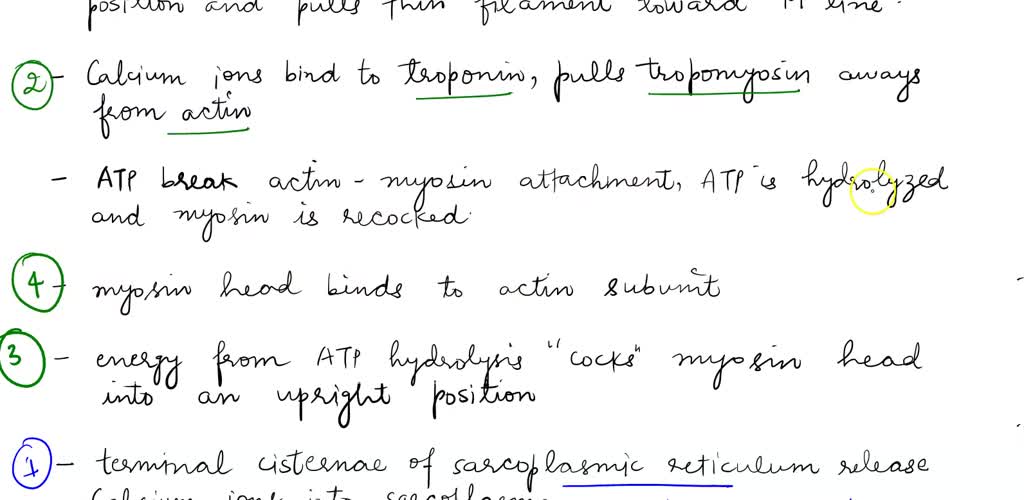 position and pulls thin filament toward M line.
2 - Calcium ions bind to troponin, pulls tropomyosin aways
from actin
- ATP break actin - myosin attachment, ATP is hydrolyzed
and myosin is recocked.
4 - myosin head binds to actin subunit
3 - energy from ATP hydrolysis "cocks" myosin head
into an upright position
1 - terminal cisternae of sarcoplasmic reticulum release
Calcium ions into sarcoplasm